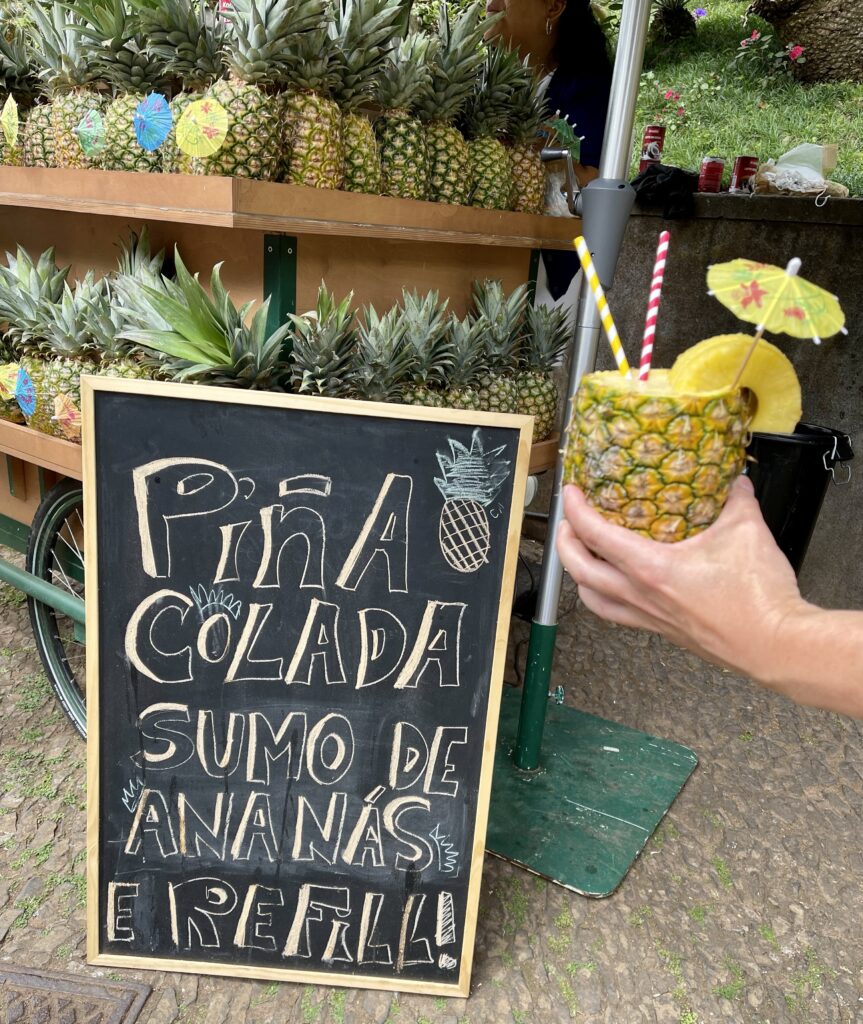 Piña
COLADA
SUMO DE
ANANÁS
E REFiLL!